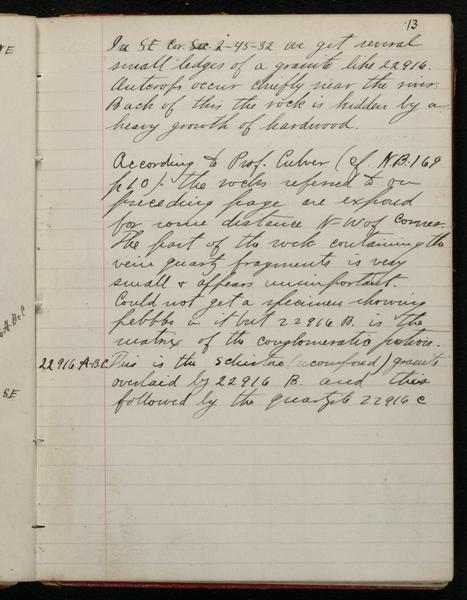 13
In SE Cor. Sec. 2-45-32 we get several
small ledges of a granite like 22916.
Outcrops occur chiefly near the river.
Back of this the rock is hidden by a
heavy growth of hardwood.
According to Prof. Culver (cf. N.B. 169
p 60). the rocks referred to on
preceding page are exposed
for some distance N-W of Corner.
The part of the rock containing the
vein quartz fragments is very
small & appears unimportant.
Could not get a specimen showing
pebbles in it but 22916 B. is the
matrix of the conglomeratic portion.
22916 A-B-C This is the schistose granite
overlaid by 22916 B. and this
followed by the quartzite 22916 C
NE
A.B.C
SE